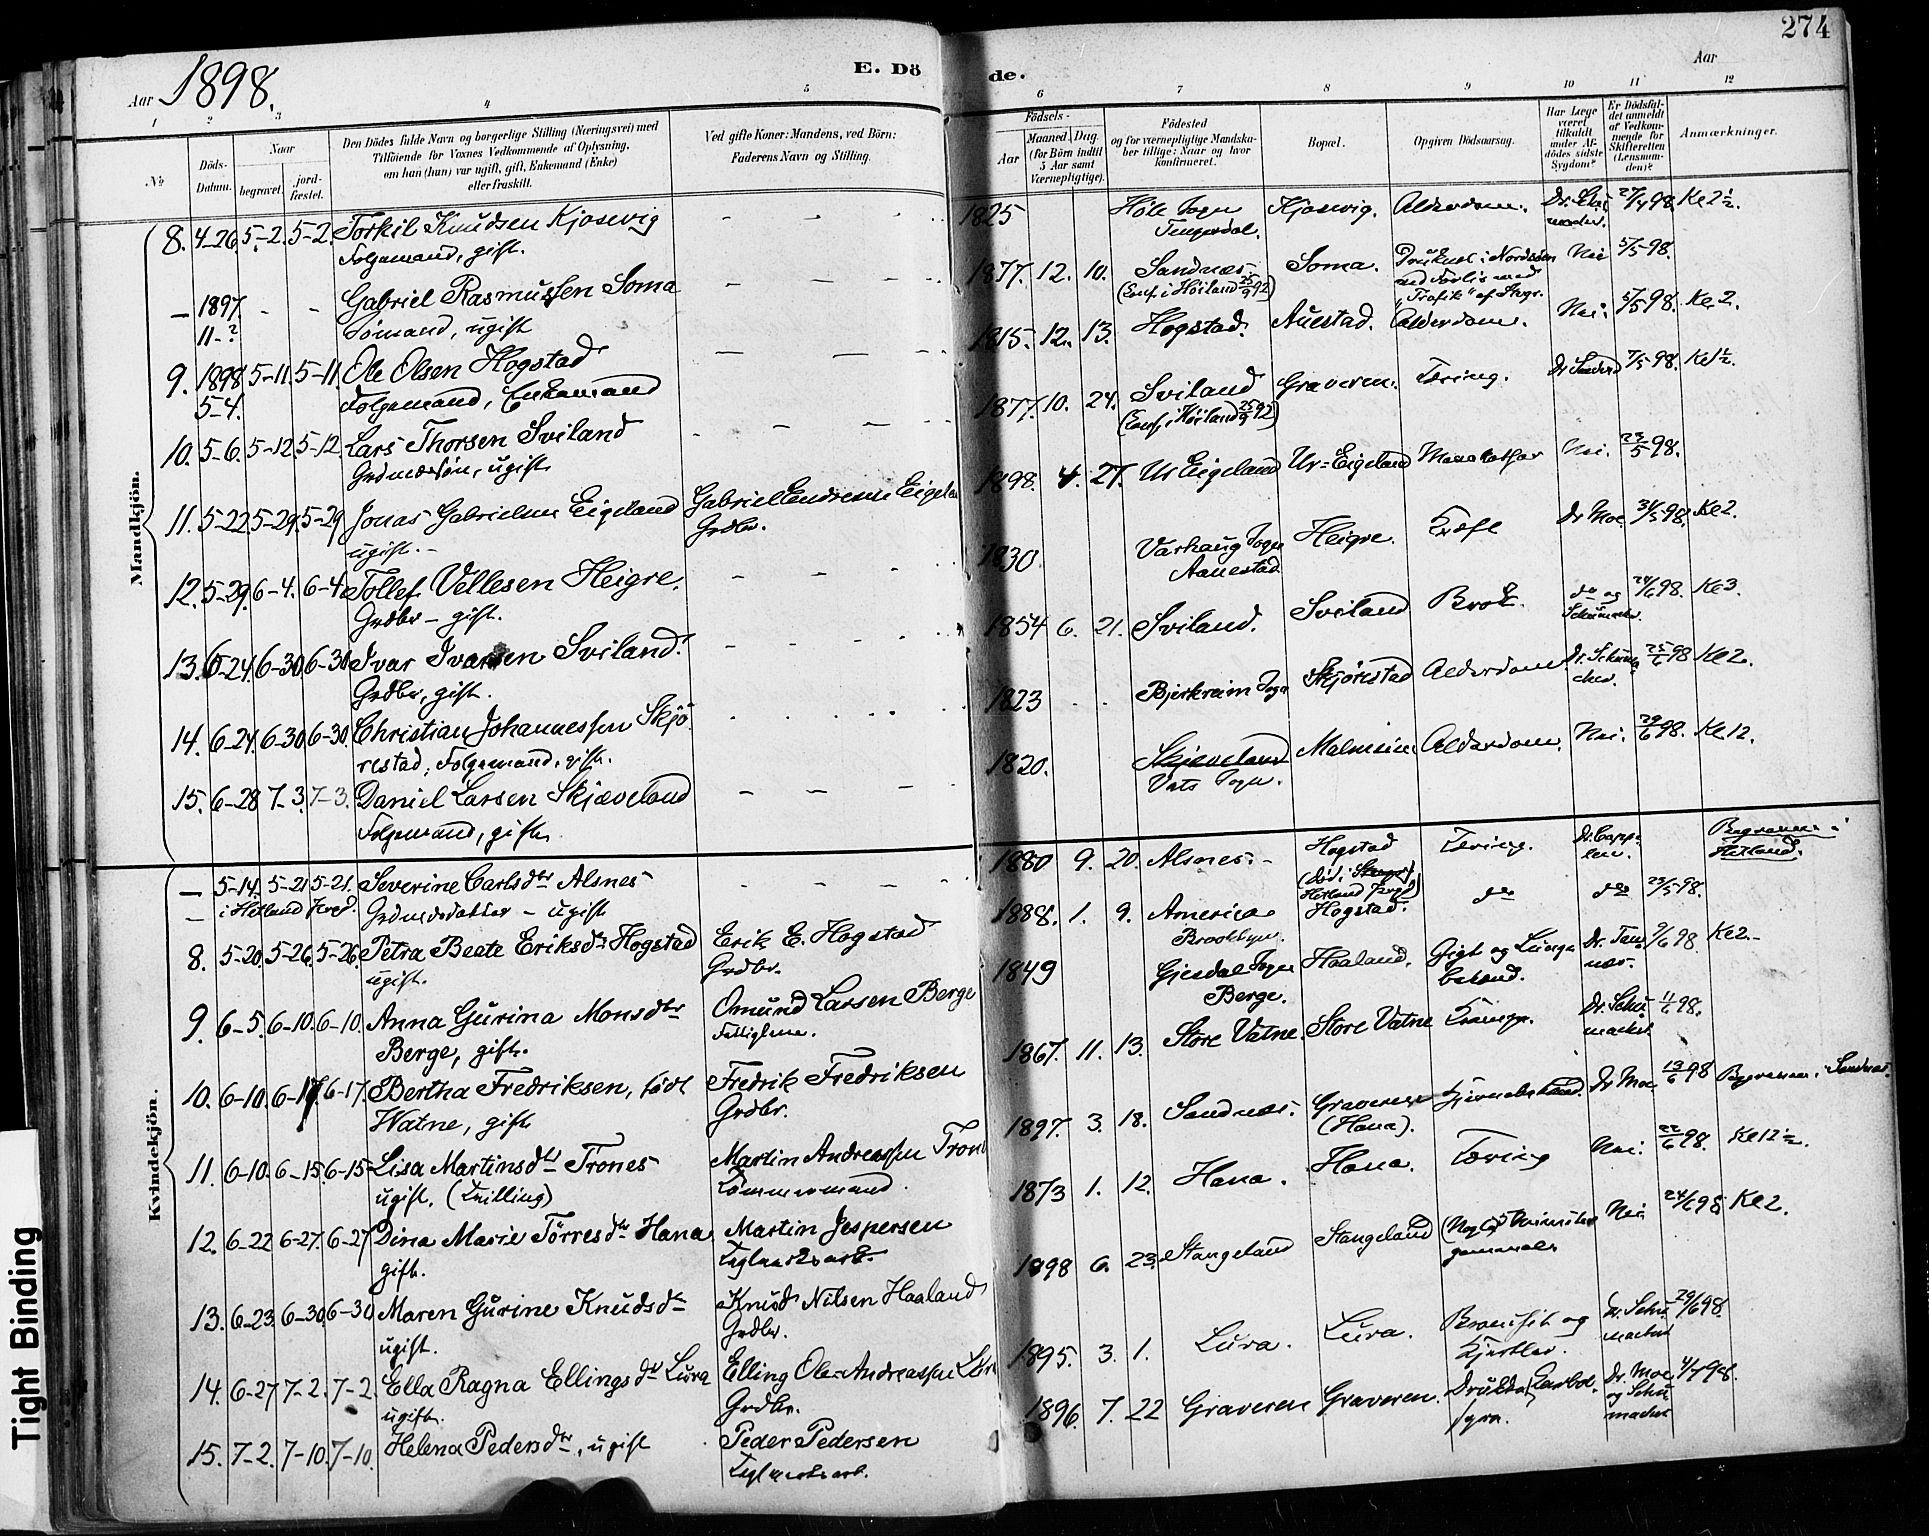 274
1898.
E. Döde.
Aar
Aar
1 2 3 4 5 6 7 8 9 10 11 12
No
Döds-Datum.
Naar begravet.
jordfæstet.
Den Dödes fulde Navn og borgerlige Stilling (Næringsvei) med
Tilföiende for Voxnes Vedkommende af Oplysning,
om han (hun) var ugift, gift, Enkemand (Enke)
eller fraskilt.
Ved gifte Koner: Mandens, ved Börn:
Faderens Navn og Stilling.
Födsels-
Aar
Maaned. Dag.
(for Börn indtil 5 Aar samt Værnepligtige).
Födested
og for værnepligtige Mandskaber tillige: Naar og hvor konfirmeret.
Bopæl.
Opgiven Dödsaarsag.
Har Læge været tilkaldt under Afdödes sidste Sygdom?
Er Dödsfaldet anmeldt af Vedkommende for Skifteretten (Lensmanden)?
Anmærkninger.
Mandkjön.
8. 4-26. 5-2. 5-2. Torkil Knudsen Kjosevig 1825 Höle Sogn Kjosevig. Alderdom. 27/4 98. Ke 2½.
Folgemand, gift.
– 1897 11-? Gabriel Rasmussen Soma 1877. 12. 10. Sandnæs Soma. Nei 5/5-98.
Sömand, ugift (Conf. i Höiland 25/9 92) "Trafik" af Stvgr.
9. 1898 5-4. 5-11. 5-11. Ole Olsen Hogstad 1815. 12. 13. Hogstad. Auestad. Alderdom. Nei. 5/5 98. Ke 2.
Folgemand, Enkemand
10. 5-6. 5-12. 5-12. Lars Thorsen Sviland 1877. 10. 24. Sviland Graveren. Tæring. 7/5 98. Ke 1½.
Grdmdssön, ugift (Conf. i Höiland 25/9 92)
11. 5-22. 5-29. 5-29. Jonas Gabrielsen Eigeland Gabriel Endresen Eigeland 1898. 4. 27. Ur Eigeland Ur-Eigeland Nei. 23/5 98.
ugift. – Grdbr.
12. 5-29. 6-4. 6-4. Tollef Vellesen Heigre. 1830. Varhaug Sogn Heigre. Kræft Dr Moe. 31/5 98. Ke 2.
Grdbr – gift. Aanestad.
13. 6-24. 6-30. 6-30. Ivar Ivarsen Sviland. 1854 6. 21. Sviland. Sviland Brok. do og Schumacher. 24/6 98. Ke 3.
Grdbr, gift.
14. 6-24. 6-30. 6-30. Christian Johannessen Skjörestad, 1823 Bjerkreim Sogn Skjörestad Alderdom Dr. Schumacher. 25/6 98 Ke 2.
Folgemand, gift.
15. 6-28 7-3. 7-3. Daniel Larsen Skjæveland 1820. Skjæveland Malmeim Alderdom. Nei. 29/6 98. Ke 12.
Folgemand, gift. Vats Sogn.
Kvindekjön.
– 5-14. 5-21 5-21. Severine Carlsdtr Alsnes 1880 9. 20. Alsnes. – Hogstad Tæring. Dr. Cappelen. Begraven i Hetland.
– i Hetland Prgd. Grdmdsdatter – ugift (Död i Hetland Prgd)
8. 5-20. 5-26. 5-26. Petra Beate Eriksdtr Hogstad Erik E. Hogstad 1888. 1. 9. America Hogstad. do do 23/5-98.
ugift. Grdbr. Brooklyn.
9. 6-5. 6-10. 6-10. Anna Gurina Monsdtr Omund Larsen Berge 1849 Gjesdal Sogn Haaland. Gigt og Lungebetænd. 7/6 98 Ke 2. –
Berge, gift. Fattiglem. Berge.
10. 6-10. 6-17. 6-17. Bertha Fredriksen, födt Fredrik Fredriksen 1867. 11. 13. Store Vatne. Store Vatne Dr. Schumacher. 11/6 98.
Watne, gift Grdbr.
11. 6-10. 6-15. 6-15. Lisa Martinsdtr Trones Martin Andreassen Trones 1897. 3. 18. Sandnæs. Graveren (Hana). Hjernebetænd. Dr Moe. 13/6 98 Begraven i Sandnæs.
ugift. (Tvilling) Tömmermand.
12. 6-22 6-27. 6-27 Dina Marie Törresdtr Hana Martin Jespersen 1873 1. 12. Hana. Hana. Tæring Nei. 22/6 98. Ke 12½.
gift. Teglverksarb.
13. 6-23. 6-30. 6-30 Maren Gurine Knudsdtr Knud Nilsen Haaland 1898 6. 23. Stangeland Stangeland Nei 24/6 98 Ke 2.
ugift. Grdbr.
14. 6-27. 7-2. 7-2. Ella Ragna Ellingsdtr Lura Elling Ole Andreassen Lura 1895. 3. 1. Lura. Lura. Dr. Schumacher 29/6 98.
ugift. Grdbr.
15. 7-2. 7-10. 7-10. Helena Pedersdtr, ugift Peder Pedersen 1896. 7. 22 Graveren Graveren. Drukket Carbolsyra. Dr. Moe og Schumacher 4/7 98.
Teglverksarb.
Tight Binding